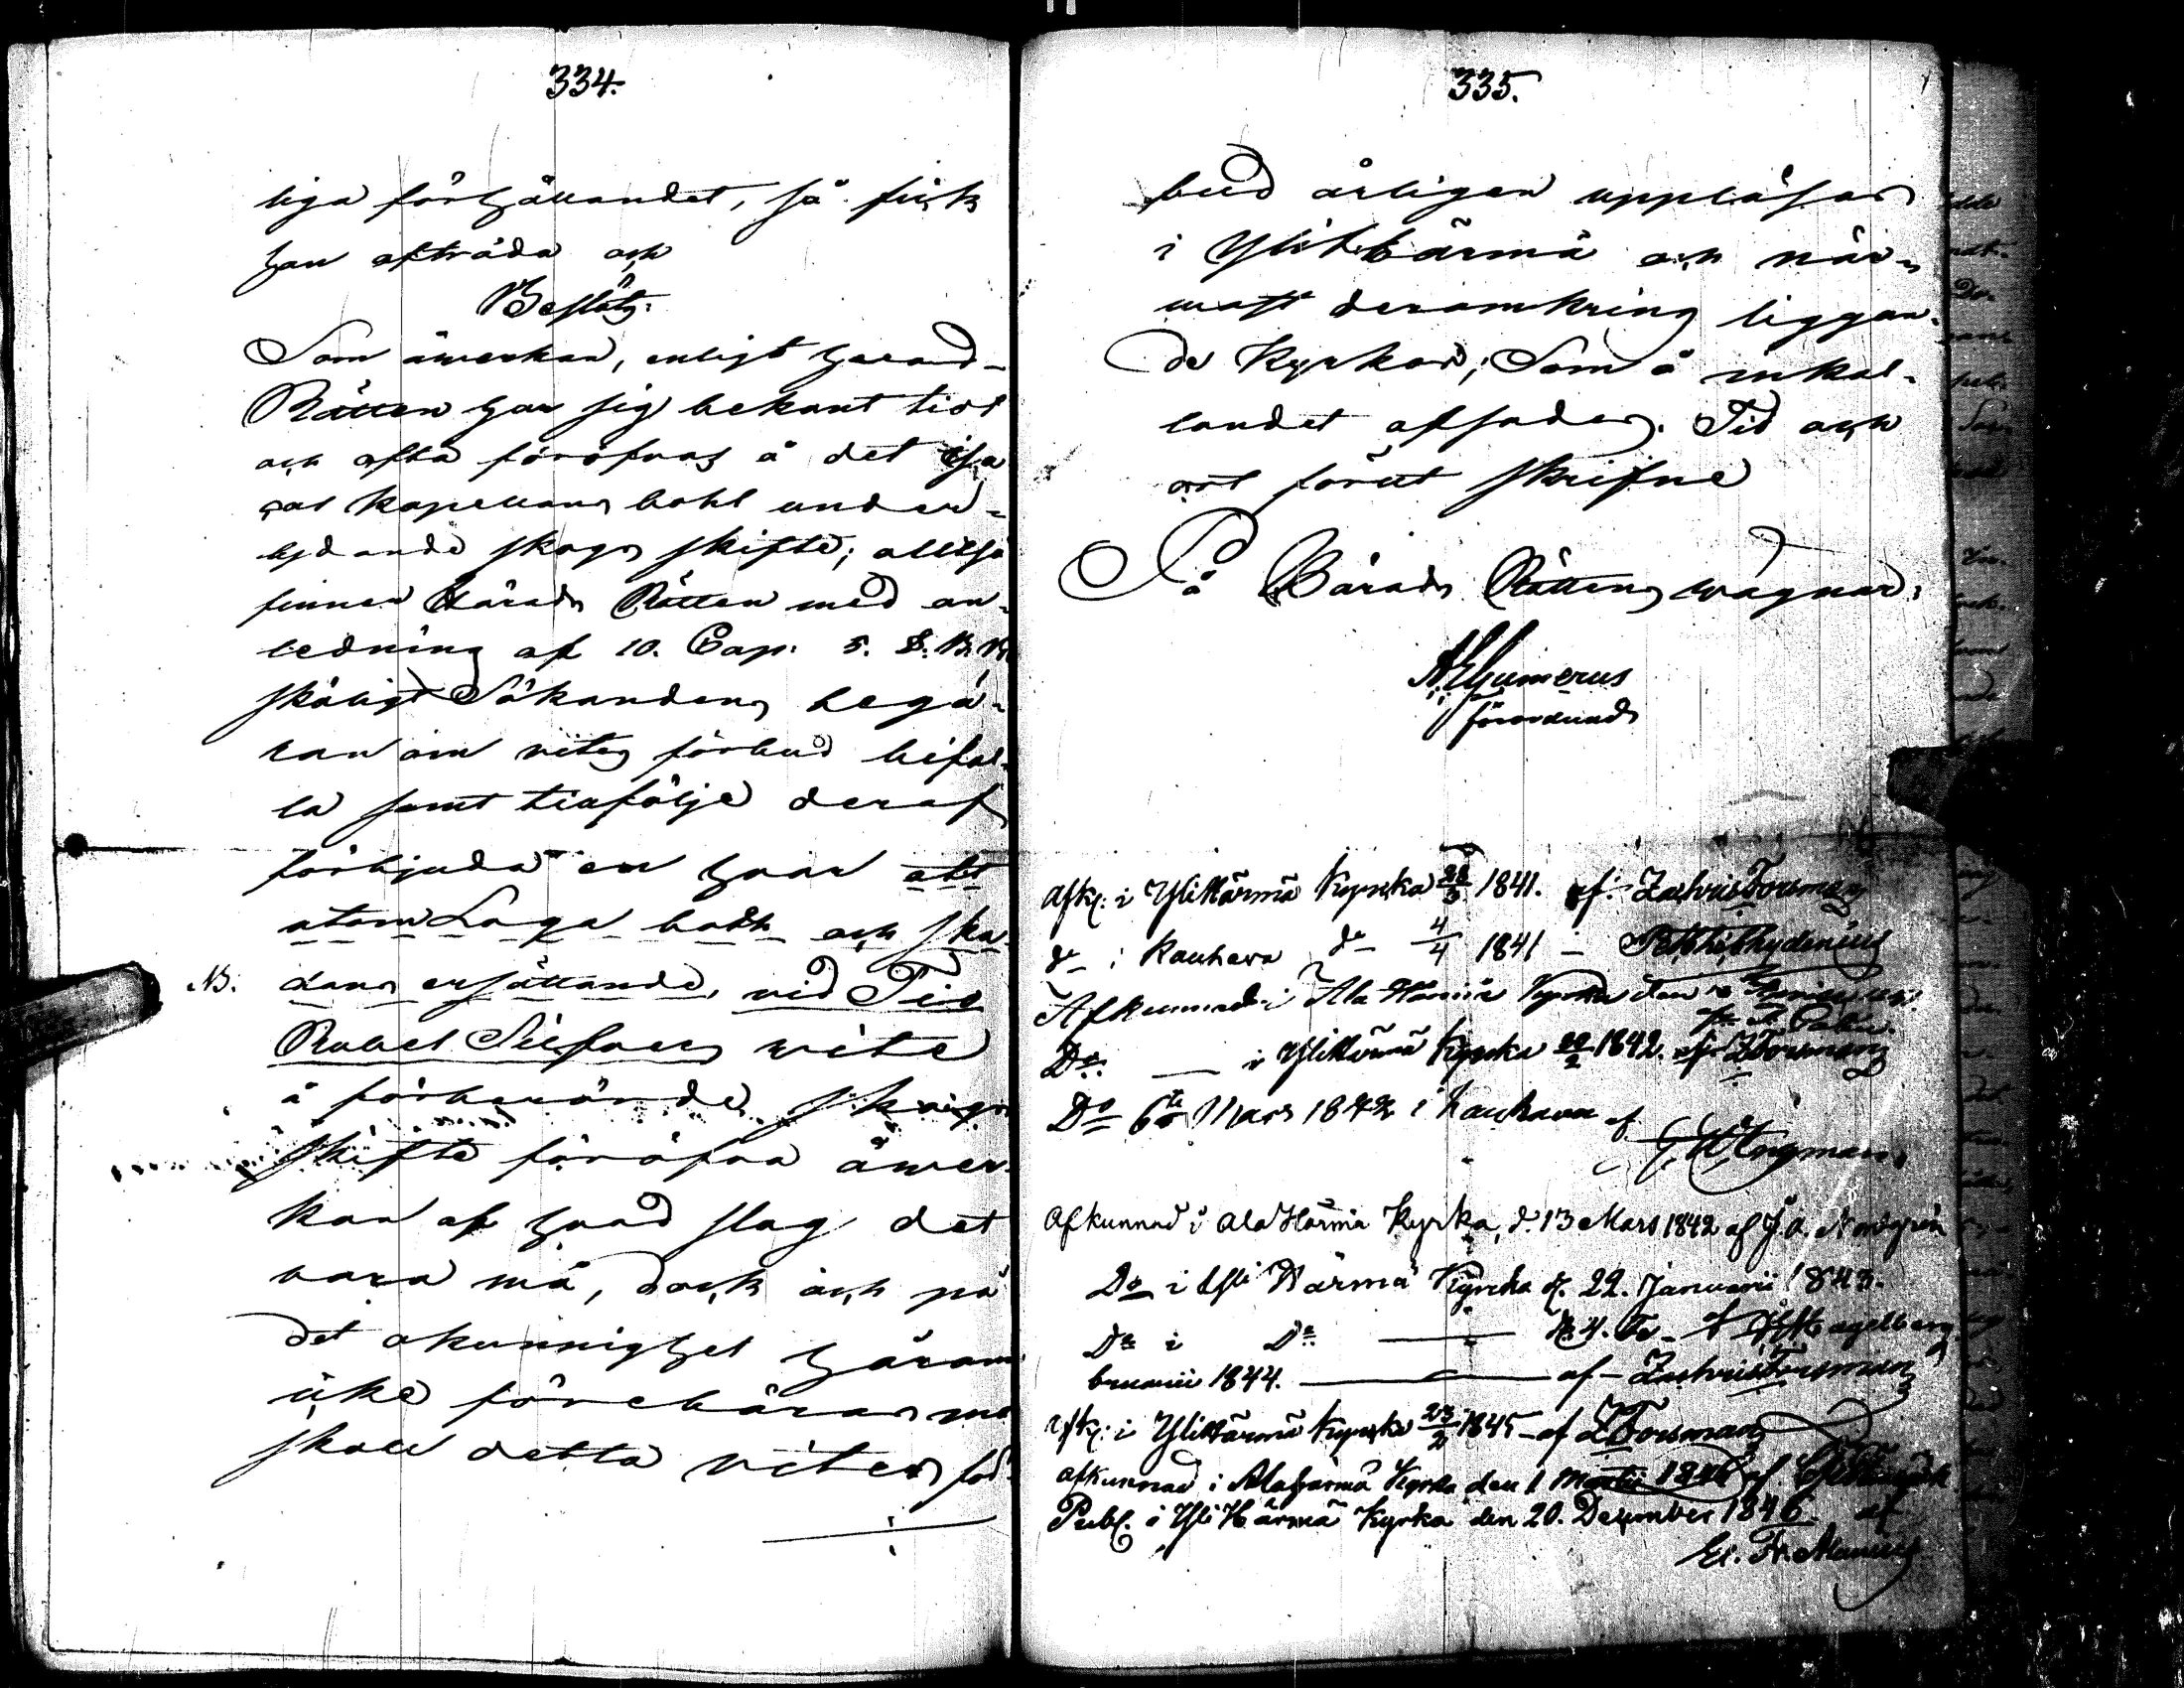 334.
liga förhållandet, så fick
han afträda och
Beslöts:
Som åwerkan, enligt hwad
Rätten har sig bekant tidt
och ofta föröfvas å det
Kapellans bohl under-
lydande skogs skifte; alltså
finner Härads Rätten med an-
ledning af 10. Cap. 5. §. B. B.
skäligt Sökandens begä-
ran om vites förbud bifal-
la samt tillfölje deraf
förbjuda en hvar att
utom Laga both och ska-
NB. dans ersättande, vid Tio
Rubel Silfver vite
å förberörde skogs
skifte föröfva åwer-
kan af hvad slag det
vara må, dock och på
det okunnighet härom
icke förebäras må
skall detta vites för-
335.
bud årligen uppläsas
i Ylihärmä och när-
mast deromkring liggan-
de Kyrkor; Som å inkal-
landet afsades. Tid och
ort förut skrifne
På Härads Rättens wägnar:
förordnad
Afk: i Ylihärmä Kyrcka 28/3 1841. af Zachris Forsman
do i Kauhava do 4/4 1841 – Chydenius
Afkunnad i Ala Härmä Kyrka den
Do: — i Ylihärmä Kyrcka 20/2 1842. af ZForsman
Do 6te Mars 1842 i Kauhava af
Engman.
Afkunnad i Ala Härmä Kyrka, d. 13 Mars 1842 af J. A. Nordgren
Do i Yli Härmä Kyrcka d. 22. Januarii 1843.
Do i Do — d. 4. Fe- Hagelberg
bruarii 1844. — af – Zachris Forsman
Afk: i Ylihärmä Kyrcka 23/2 1845 – af ZForsman
Afkunnad i Alahärmä Kyrka den 1 Martii 1846 af
Publ. i Yli Härmä Kyrka den 20. December 1846. af
Alanius